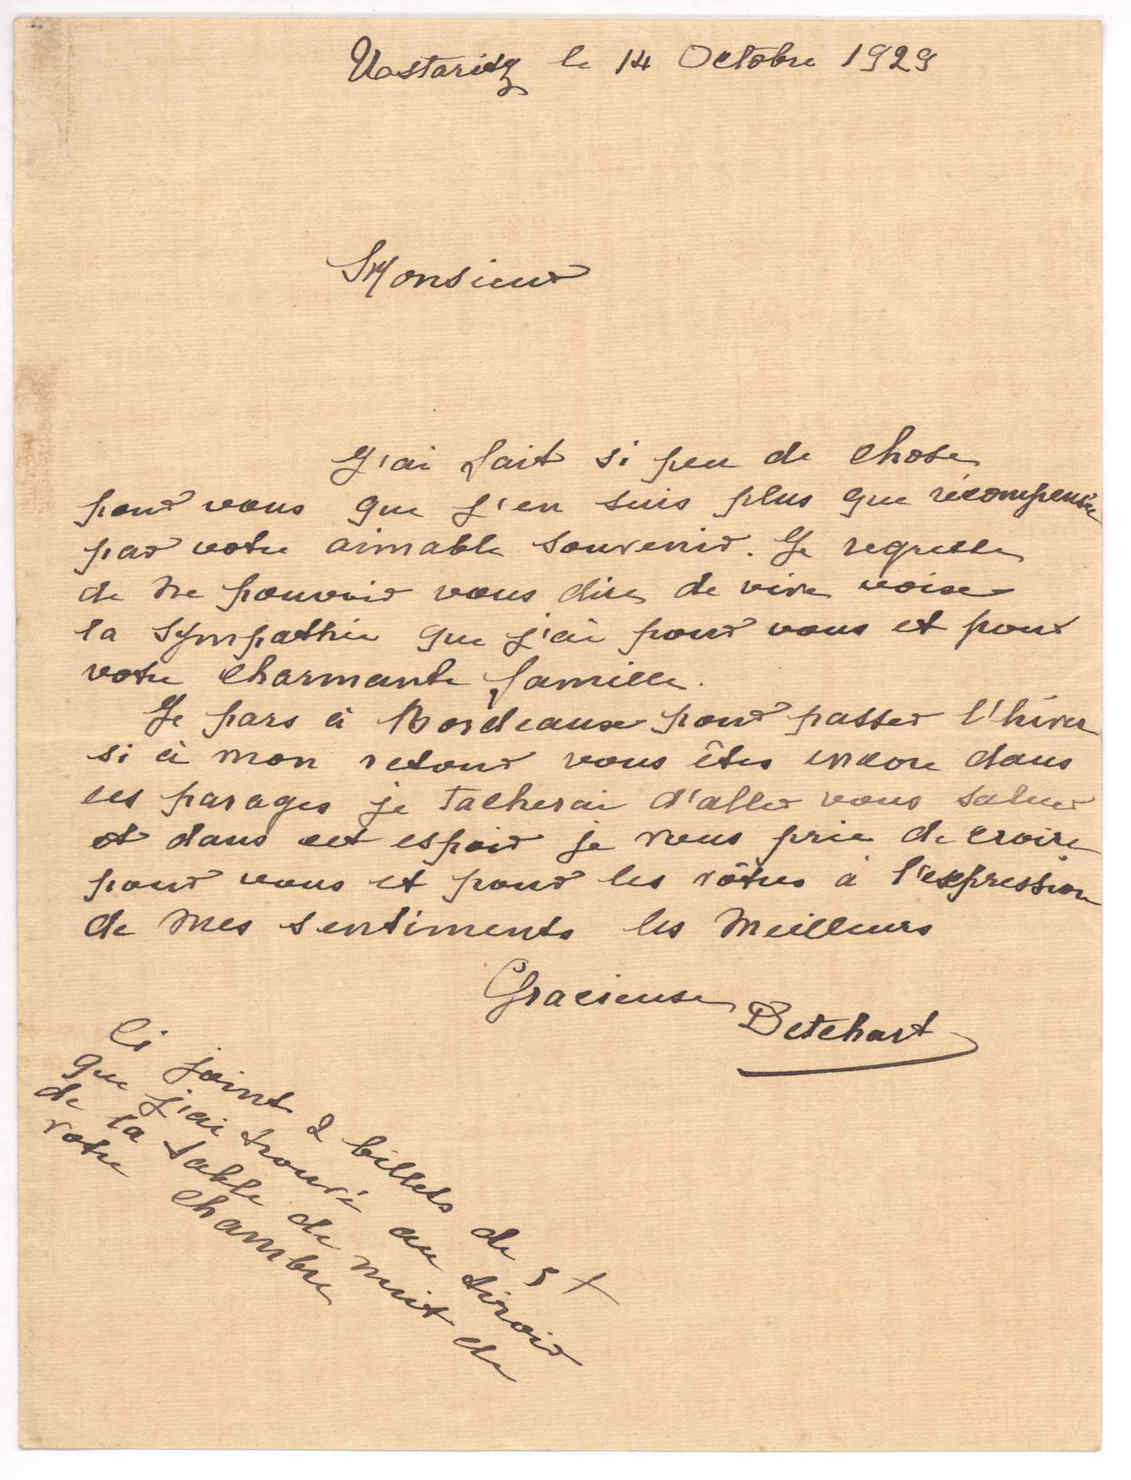 Ustaritz le 14 Octobre 1929
Monsieur
J'ai fait si peu de chose
pour vous que j'en suis plus que récompensée
par votre aimable souvenir. Je regrette
de ne pouvoir vous dire de vive voise
la sympathie que j'ai pour vous et pour
votre charmante famille.
Je pars à Bordeaux pour passer l'hiver
si à mon retour vous êtes encore dans
ces parages je tacherai d'aller vous saluer
et dans cet espoir je vous prie de croire
pour vous et pour les vôtres à l'expression
de mes sentiments les meilleurs
Gracieuse Detchart
Ci joint 2 billets de 5 f
que j'ai trouvé au tiroir
de la table de nuit de
votre chambre